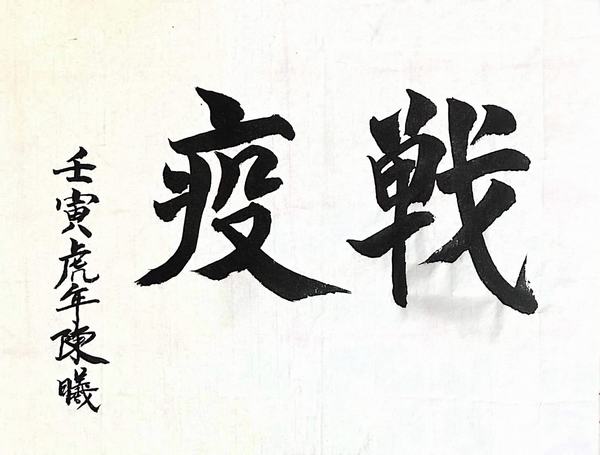 戦疫
壬寅虎年陳曦